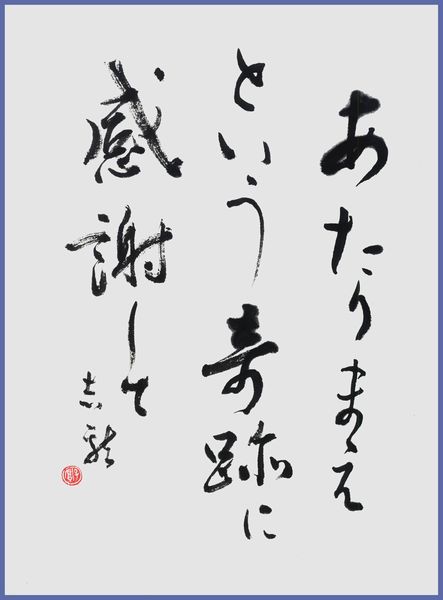 あたりまえ
という奇跡に
感謝して